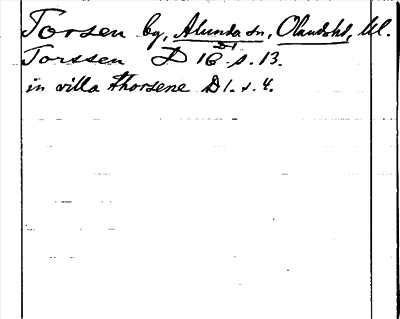 Torsen by, Alunda sn, Olandshd, Upl.
Torssen D 18 s. 13.
D1
in villa thorsene D1. s. 4.